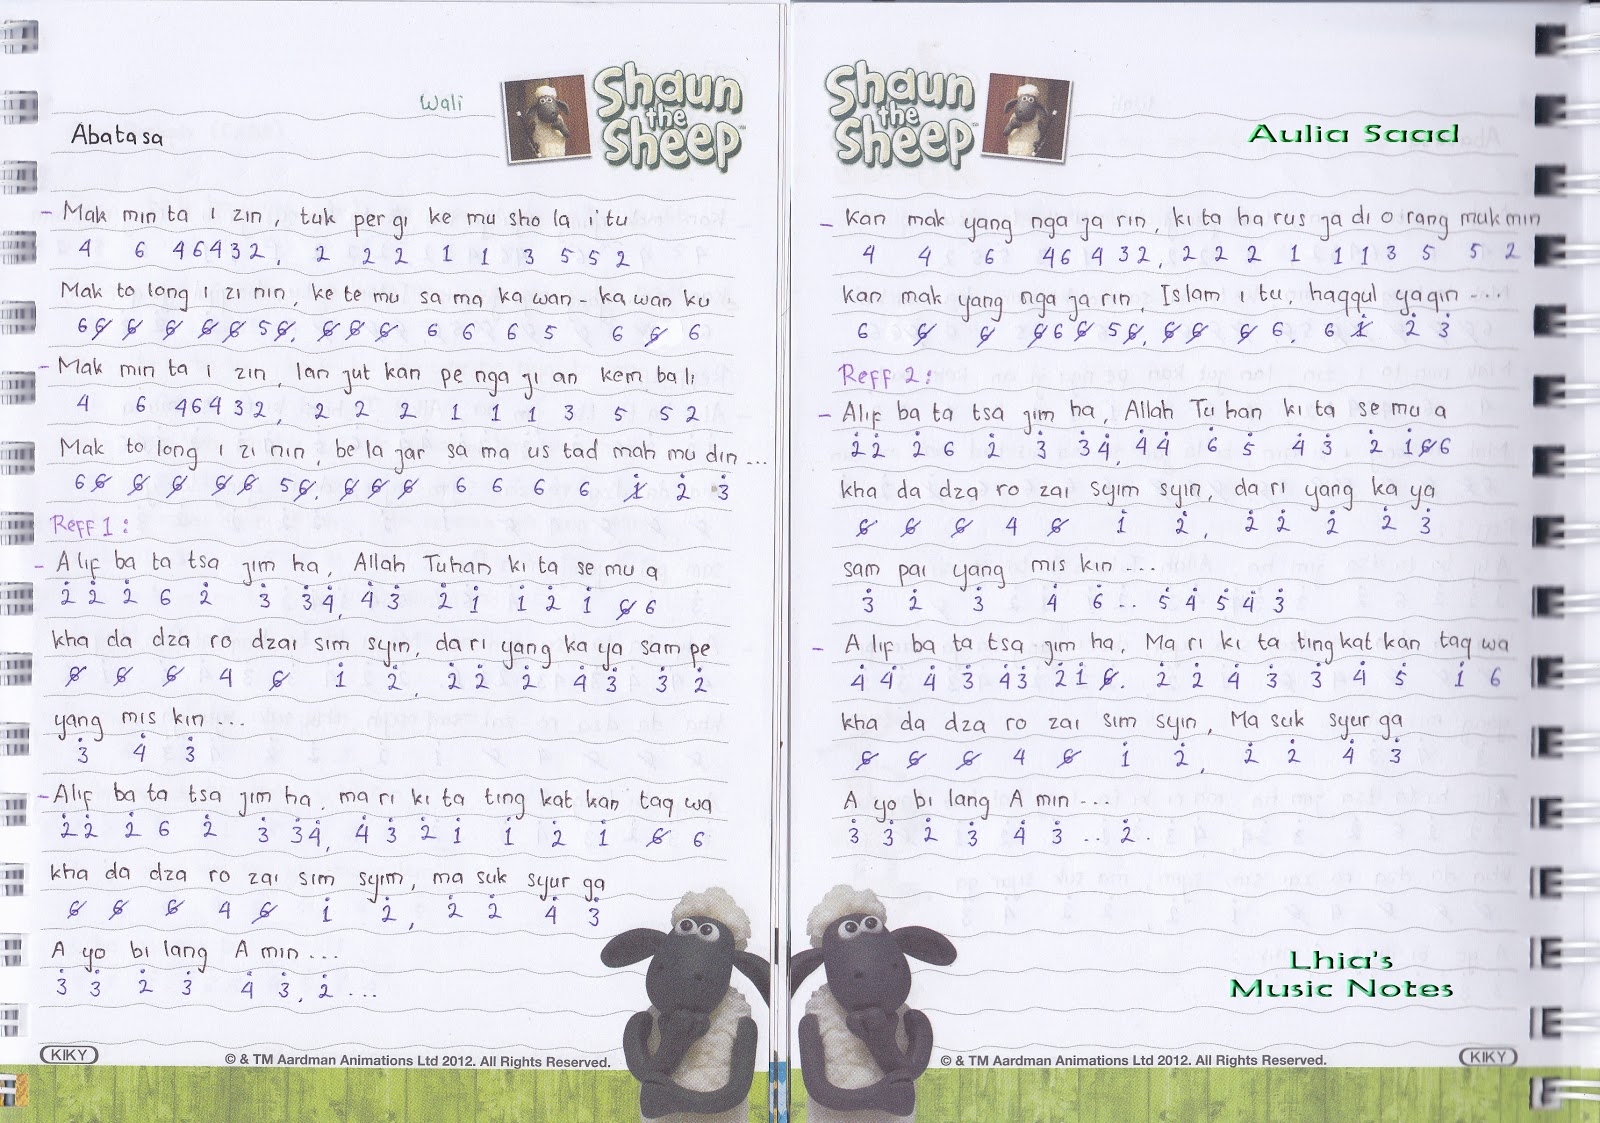 Wali
Shaun the Sheep™
Abatasa
- Mak min ta i zin, tuk per gi ke mu sho la i tu
4 6 4 6 4 3 2, 2 2 2 1 1 3 5 5 2
Mak to long i zi nin, ke te mu sa ma ka wan - ka wan ku
6 6̸ 6̸ 6̸ 6̸ 6̸ 5 6̸, 6̸ 6̸ 6̸ 6 6 6 5 6 6̸ 6
- Mak min ta i zin, lan jut kan pe nga ji an kem ba li
4 6 4 6 4 3 2, 2 2 2 1 1 1 3 5 5 2
Mak to long i zi nin, be la jar sa ma us tad mah mu din ...
6 6̸ 6̸ 6̸ 6̸ 6̸ 5 6̸, 6̸ 6̸ 6̸ 6 6 6 6 1̸̇ 2̇ 3̇
Reff 1 :
- A lif ba ta tsa jim ha, Allah Tuhan ki ta se mu a
2̇ 2̇ 2̇ 6 2̇ 3̇ 3̇ 4̇, 4̇ 3̇ 2̇ 1̇ 1̇ 2̇ 1̇ 6̸ 6
kha da dza ro dzai sim syin, da ri yang ka ya sam pe
6̸ 6̸ 6̸ 4 6̸ 1̇ 2̇, 2̇ 2̇ 2̇ 4̇ 3̇ 3̇ 2̇
yang mis kin ...
3̇ 4̇ 3̇
- Alif ba ta tsa jim ha, ma ri ki ta ting kat kan taq wa
2̇ 2̇ 2̇ 6 2̇ 3̇ 3̇ 4̇, 4̇ 3̇ 2̇ 1̇ 1̇ 2̇ 1̇ 6̸ 6
kha da dza ro zai sim syim, ma suk syur ga
6̸ 6̸ 6̸ 4 6̸ 1̇ 2̇, 2̇ 2̇ 4̇ 3̇
A yo bi lang A min ...
3̇ 3̇ 2̇ 3̇ 4̇ 3̇, 2̇ ...
KIKY
© & TM Aardman Animations Ltd 2012. All Rights Reserved.
Shaun the Sheep™
Aulia Saad
- Kan mak yang nga ja rin, ki ta ha rus ja di o rang muk min
4 4 6 4 6 4 3 2, 2 2 2 1 1 1 3 5 5 2
kan mak yang nga ja rin, Islam i tu haqqul yaqin ...
6 6̸ 6̸ 6̸ 6 6̸ 5 6̸, 6̸ 6̸ 6̸ 6, 6 1̸̇ 2̇ 3̇
Reff 2 :
- Alif ba ta tsa jim ha, Allah Tu han ki ta se mu a
2̇ 2̇ 2̇ 6 2̇ 3̇ 3̇ 4̇, 4̇ 4̇ 6̇ 5̇ 4̇ 3̇ 2̇ 1̇ 6̸ 6
kha da dza ro zai syim syin, da ri yang ka ya
6̸ 6̸ 6̸ 4 6̸ 1̇ 2̇, 2̇ 2̇ 2̇ 2̇ 3̇
sam pai yang mis kin ...
3̇ 2̇ 3̇ 4̇ 6̇ .. 5̇ 4̇ 5̇ 4̇ 3̇
- A lif ba ta tsa jim ha, Ma ri ki ta ting kat kan taq wa
4̇ 4̇ 4̇ 3̇ 4̇ 3̇ 2̇ 1̇ 6̸. 2̇ 2̇ 4̇ 3̇ 3̇ 4̇ 5̇ 1̇ 6
kha da dza ro zai sim syin, Ma suk syur ga
6̸ 6̸ 6̸ 4 6̸ 1̇ 2̇, 2̇ 2̇ 4̇ 3̇
A yo bi lang A min ...
3̇ 3̇ 2̇ 3̇ 4̇ 3̇ .. 2̇ .
Lhia's
Music Notes
© & TM Aardman Animations Ltd 2012. All Rights Reserved.
KIKY